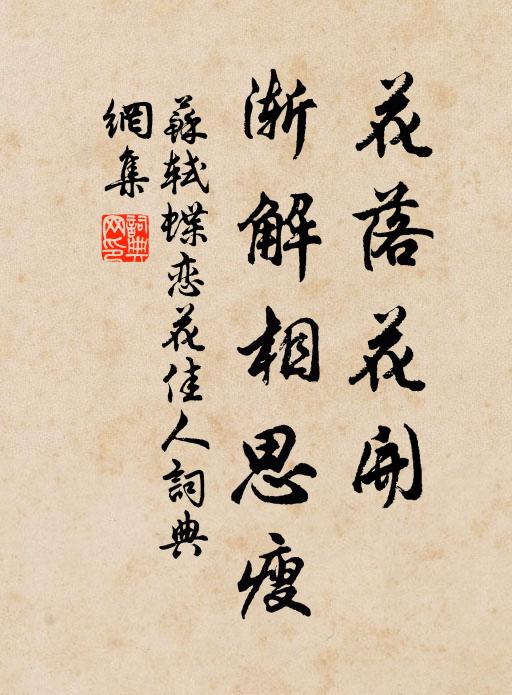 花落花开
渐解相思瘦
蘇軾蝶恋花佳人詞典
網集
詞典
网印